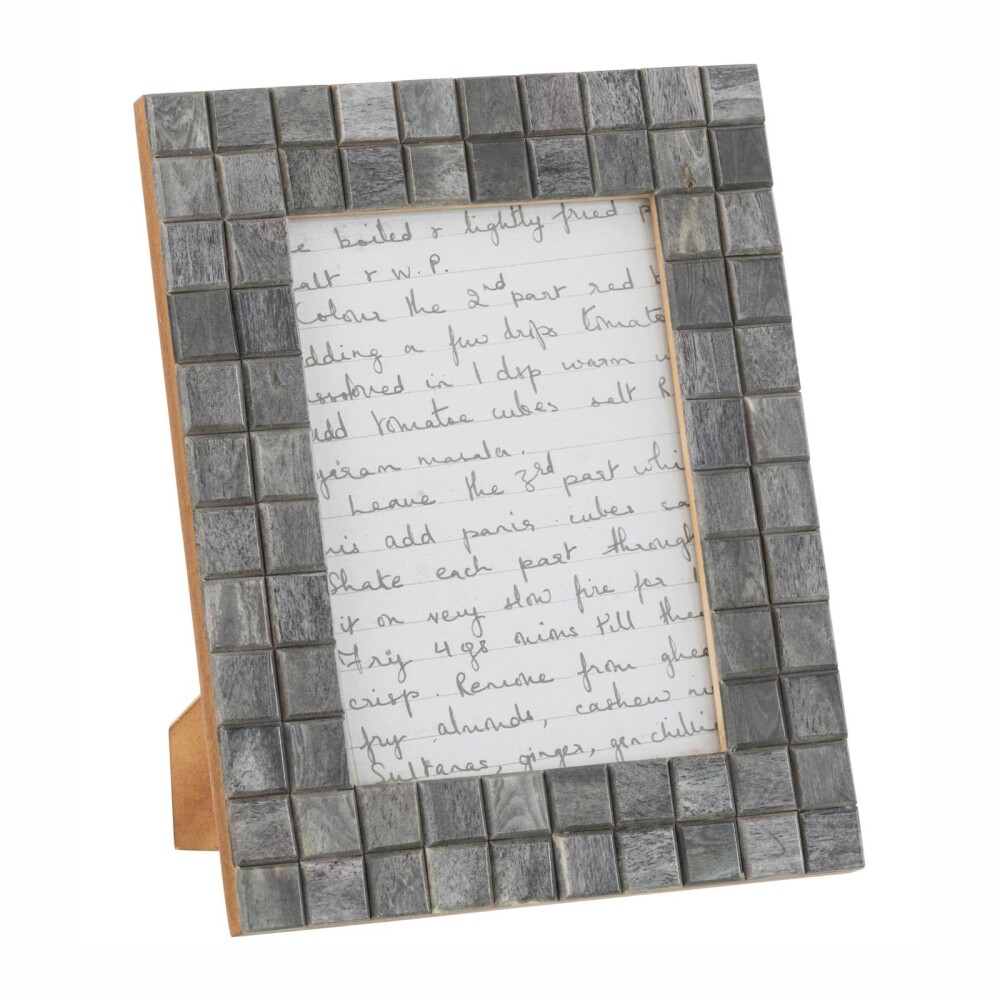 e boiled & lightly fried p
alt & W.P.
Colour the 2nd part red b
dding a few drps tomato
ssolved in 1 dsp warm w
add tomatoe cubes salt R
garam masala.
Leave the 3rd part whi
his add panir cubes sa
Shake each part through
it on very slow fire for 1
Fry 4 ozs onions till they
crisp. Remove from ghee
fry almonds, cashew nu
Sultanas, ginger, grn chillie